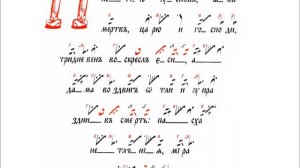 мертвъ, царю и господи,
тридневенъ воскреслъ еси, а
дама воздвигъ ѿ тли и ѹпра
зднивъ смерть: пасха
нетлѣнїѧ, мїра